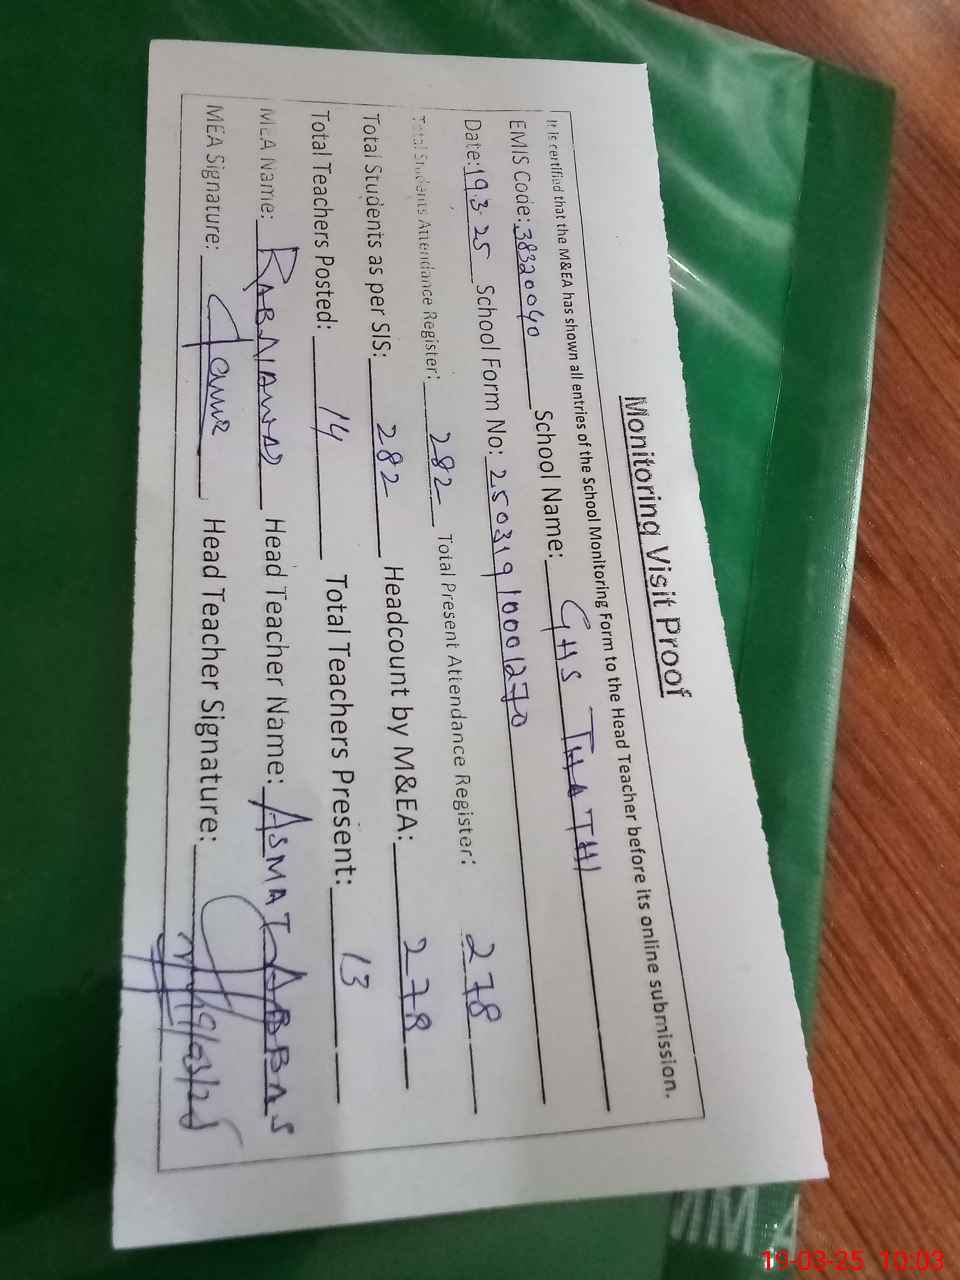 Monitoring Visit Proof
It is certified that the M&EA has shown all entries of the School Monitoring Form to the Head Teacher before its online submission.
EMIS Code: 38320040 School Name: GHS THATHI
Date: 19.3.25 School Form No: 25031910001270
Total Students Attendance Register: 282 Total Present Attendance Register: 278
Total Students as per SIS: 282 Headcount by M&EA: 278
Total Teachers Posted: 14 Total Teachers Present: 13
MEA Name: RABNAWAS Head Teacher Name: ASMAT ABBAS
MEA Signature: Head Teacher Signature:
19/03/25
19-03-25 10:03